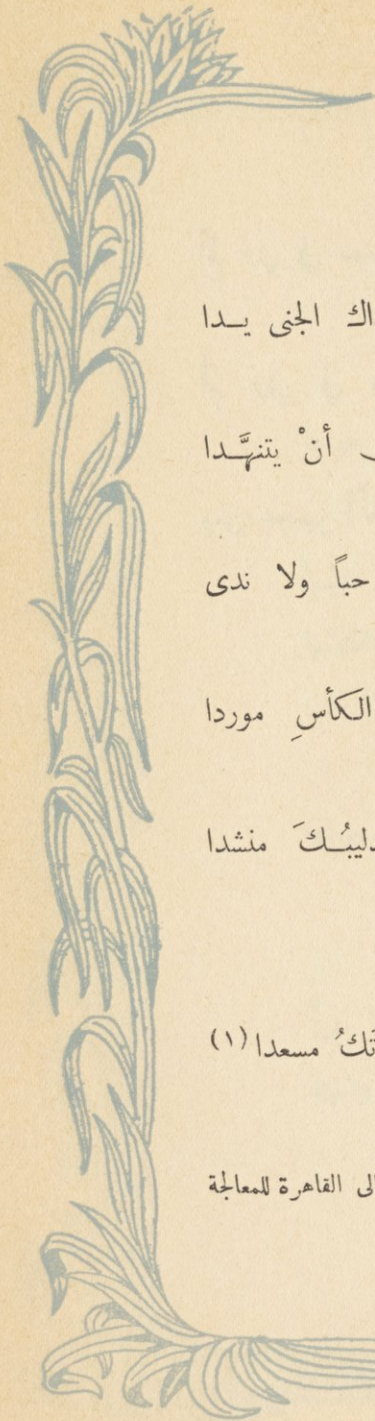 الجنى يــدا
أنْ يتنهَّــدا
حباً ولا ندى
الكأسِ موردا
منشدا
مسعدا (١)
القاهرة للمعالجة